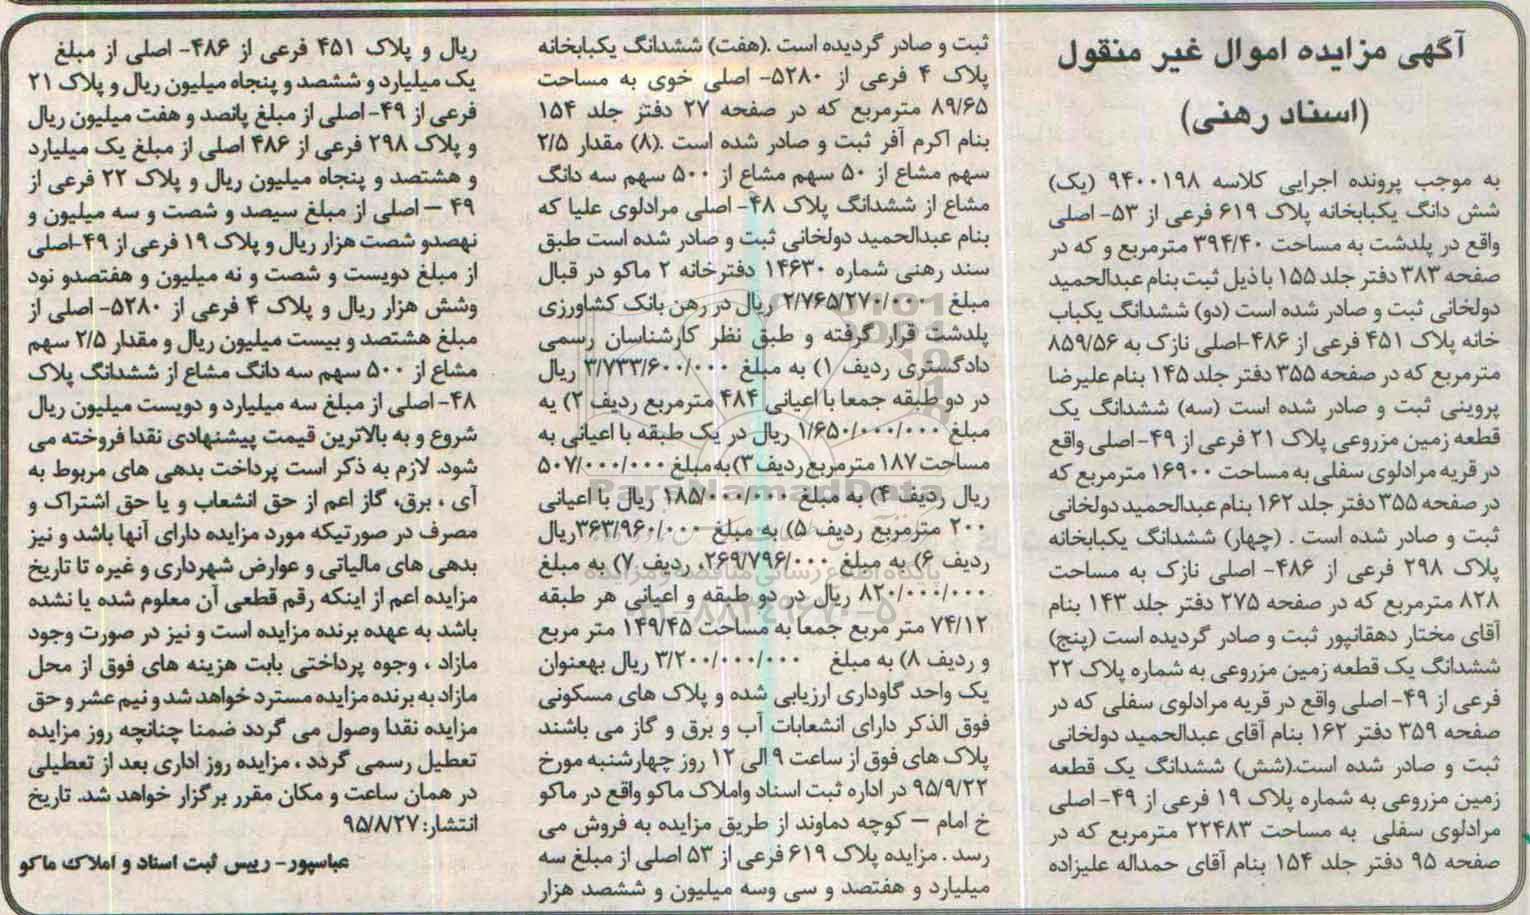 آگهی مزایده اموال غیر منقول
(اسناد رهنی)
به موجب پرونده اجرایی کلاسه ۹۴۰۰۱۹۸ (یک)
شش دانگ یکبابخانه پلاک ۶۱۹ فرعی از ۵۳- اصلی
واقع در پلدشت به مساحت ۳۹۴/۴۰ مترمربع و که در
صفحه ۳۸۳ دفتر جلد ۱۵۵ با ذیل ثبت بنام عبدالحمید
دولخانی ثبت و صادر شده است (دو) ششدانگ یکباب
خانه پلاک ۴۵۱ فرعی از ۴۸۶-اصلی نازک به ۸۵۹/۵۶
مترمربع که در صفحه ۳۵۵ دفتر جلد ۱۴۵ بنام علیرضا
پروینی ثبت و صادر شده است (سه) ششدانگ یک
قطعه زمین مزروعی پلاک ۲۱ فرعی از ۴۹-اصلی واقع
در قریه مرادلوی سفلی به مساحت ۱۶۹۰۰ مترمربع که
در صفحه ۳۵۵ دفتر جلد ۱۶۲ بنام عبدالحمید دولخانی
ثبت و صادر شده است . (چهار) ششدانگ یکبابخانه
پلاک ۲۹۸ فرعی از ۴۸۶- اصلی نازک به مساحت
۸۲۸ مترمربع که در صفحه ۲۷۵ دفتر جلد ۱۴۳ بنام
آقای مختار دهقانپور ثبت و صادر گردیده است (پنج)
ششدانگ یک قطعه زمین مزروعی به شماره پلاک ۲۲
فرعی از ۴۹- اصلی واقع در قریه مرادلوی سفلی که در
صفحه ۳۵۹ دفتر ۱۶۲ بنام آقای عبدالحمید دولخانی
ثبت و صادر شده است.(شش) ششدانگ یک قطعه
زمین مزروعی به شماره پلاک ۱۹ فرعی از ۴۹- اصلی
مرادلوی سفلی به مساحت ۲۲۴۸۳ مترمربع که در
صفحه ۹۵ دفتر جلد ۱۵۴ بنام آقای حمداله علیزاده
ثبت و صادر گردیده است .(هفت) ششدانگ یکبابخانه
پلاک ۴ فرعی از ۵۲۸۰- اصلی خوی به مساحت
۸۹/۶۵ مترمربع که در صفحه ۲۷ دفتر جلد ۱۵۴
بنام اکرم آفر ثبت و صادر شده است .(۸) مقدار ۲/۵
سهم مشاع از ۵۰ سهم مشاع از ۵۰۰ سهم سه دانگ
مشاع از ششدانگ پلاک ۴۸- اصلی مرادلوی علیا که
بنام عبدالحمید دولخانی ثبت و صادر شده است طبق
سند رهنی شماره ۱۴۶۳۰ دفترخانه ۲ ماکو در قبال
مبلغ ۲/۷۶۵/۲۷۰/۰۰۰ ریال در رهن بانک کشاورزی
پلدشت قرار گرفته و طبق نظر کارشناسان رسمی
دادگستری ردیف ۱) به مبلغ ۳/۷۳۳/۶۰۰/۰۰۰ ریال
در دو طبقه جمعا با اعیانی ۴۸۴ مترمربع ردیف ۲) به
مبلغ ۱/۶۵۰/۰۰۰/۰۰۰ ریال در یک طبقه با اعیانی به
مساحت ۱۸۷ مترمربع ردیف ۳) به مبلغ ۵۰۷/۰۰۰/۰۰۰
ریال ردیف ۴) به مبلغ ۱۸۵/۰۰۰/۰۰۰ ریال با اعیانی
۲۰۰ مترمربع ردیف ۵) به مبلغ ۳۶۳/۹۶۰/۰۰۰ریال
ردیف ۶) به مبلغ ۲۶۹/۷۹۶/۰۰۰، ردیف ۷) به مبلغ
۸۲۰/۰۰۰/۰۰۰ ریال در دو طبقه و اعیانی هر طبقه
۷۴/۱۲ متر مربع جمعا به مساحت ۱۴۹/۴۵ متر مربع
و ردیف ۸) به مبلغ ۳/۲۰۰/۰۰۰/۰۰۰ ریال بهعنوان
یک واحد گاوداری ارزیابی شده و پلاک های مسکونی
فوق الذکر دارای انشعابات آب و برق و گاز می باشند
پلاک های فوق از ساعت ۹ الی ۱۲ روز چهارشنبه مورخ
۹۵/۹/۲۲ در اداره ثبت اسناد واملاک ماکو واقع در ماکو
خ امام – کوچه دماوند از طریق مزایده به فروش می
رسد . مزایده پلاک ۶۱۹ فرعی از ۵۳ اصلی از مبلغ سه
میلیارد و هفتصد و سی وسه میلیون و ششصد هزار
ریال و پلاک ۴۵۱ فرعی از ۴۸۶- اصلی از مبلغ
یک میلیارد و ششصد و پنجاه میلیون ریال و پلاک ۲۱
فرعی از ۴۹- اصلی از مبلغ پانصد و هفت میلیون ریال
و پلاک ۲۹۸ فرعی از ۴۸۶ اصلی از مبلغ یک میلیارد
و هشتصد و پنجاه میلیون ریال و پلاک ۲۲ فرعی از
۴۹ – اصلی از مبلغ سیصد و شصت و سه میلیون و
نهصدو شصت هزار ریال و پلاک ۱۹ فرعی از ۴۹-اصلی
از مبلغ دویست و شصت و نه میلیون و هفتصدو نود
وشش هزار ریال و پلاک ۴ فرعی از ۵۲۸۰- اصلی از
مبلغ هشتصد و بیست میلیون ریال و مقدار ۲/۵ سهم
مشاع از ۵۰۰ سهم سه دانگ مشاع از ششدانگ پلاک
۴۸- اصلی از مبلغ سه میلیارد و دویست میلیون ریال
شروع و به بالاترین قیمت پیشنهادی نقدا فروخته می
شود. لازم به ذکر است پرداخت بدهی های مربوط به
آی ، برق، گاز اعم از حق انشعاب و یا حق اشتراک و
مصرف در صورتیکه مورد مزایده دارای آنها باشد و نیز
بدهی های مالیاتی و عوارض شهرداری و غیره تا تاریخ
مزایده اعم از اینکه رقم قطعی آن معلوم شده یا نشده
باشد به عهده برنده مزایده است و نیز در صورت وجود
مازاد ، وجوه پرداختی بابت هزینه های فوق از محل
مازاد به برنده مزایده مسترد خواهد شد و نیم عشر و حق
مزایده نقدا وصول می گردد ضمنا چنانچه روز مزایده
تعطیل رسمی گردد ، مزایده روز اداری بعد از تعطیلی
در همان ساعت و مکان مقرر برگزار خواهد شد. تاریخ
انتشار: ۹۵/۸/۲۷
عباسپور- رییس ثبت اسناد و املاک ماکو
ParsNamadData
پایگاه اطلاع رسانی مناقصه و مزایده
۰۲۱-۸۸۳۴۹۶۷۰-۵